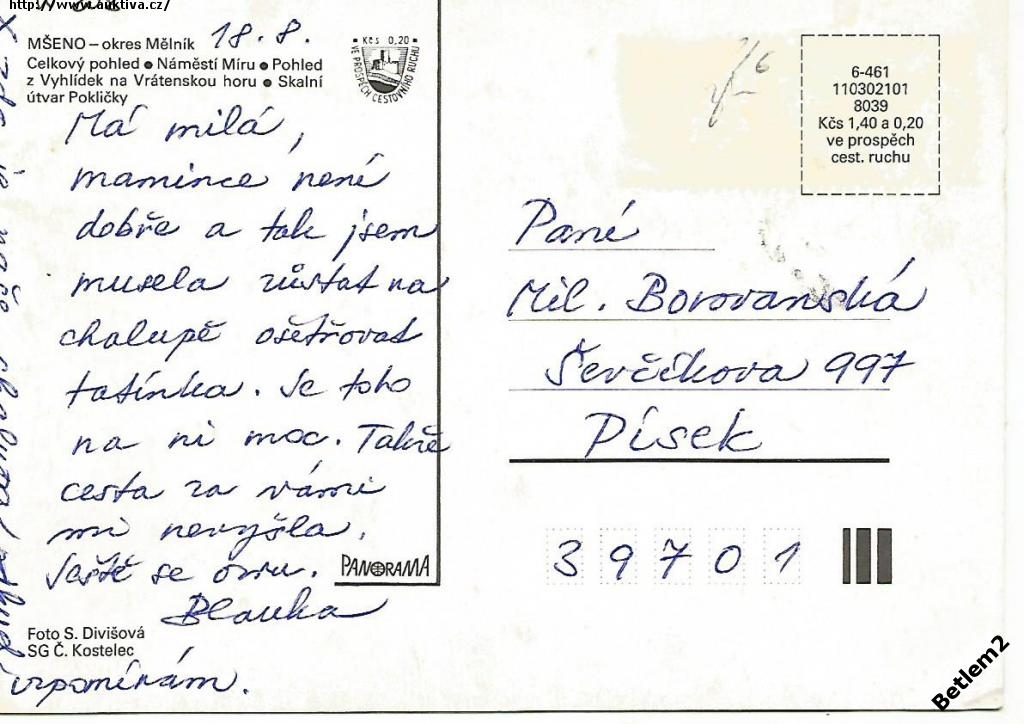 http://www.aukt​iva.cz/
18.8.
MŠENO – okres Mělník
Celkový pohled ● Náměstí Míru ● Pohled
z Vyhlídek na Vrátenskou horu ● Skalní
útvar Pokličky
Kčs 0,20
VE PROSPĚCH CESTOVNÍHO RUCHU
Má milá,
mamince není
dobře a tak jsem
musela zůstat na
chalupě ošetřovat
tatínka. Je toho
na ni moc. Takže
cesta za vámi
mi nevyšla.
Ještě se ozvu.
Blanka
PANORAMA
Foto S. Divišová
SG Č. Kostelec
vzpomínám.
x zde je naše
6-461
110302101
8039
Kčs 1,40 a 0,20
ve prospěch
cest. ruchu
Paní
Mil. Borovanská
Ševčíkova 997
Písek
39701
Betlem2